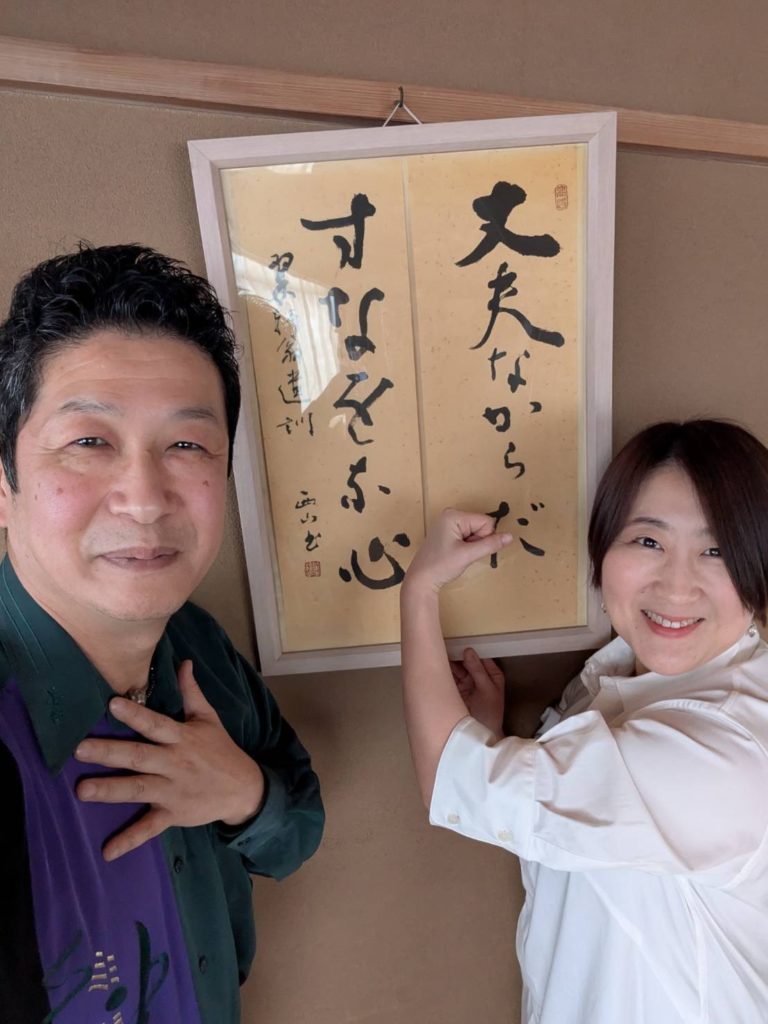 丈夫なからだ
すなをな心
翁遺訓
西山書